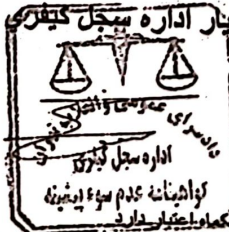 یار اداره سجل کیفری
دادسرای عمومی و انقلاب تهران
اداره سجل کیفری
گواهینامه عدم سوء پیشینه
یکماه اعتبار دارد